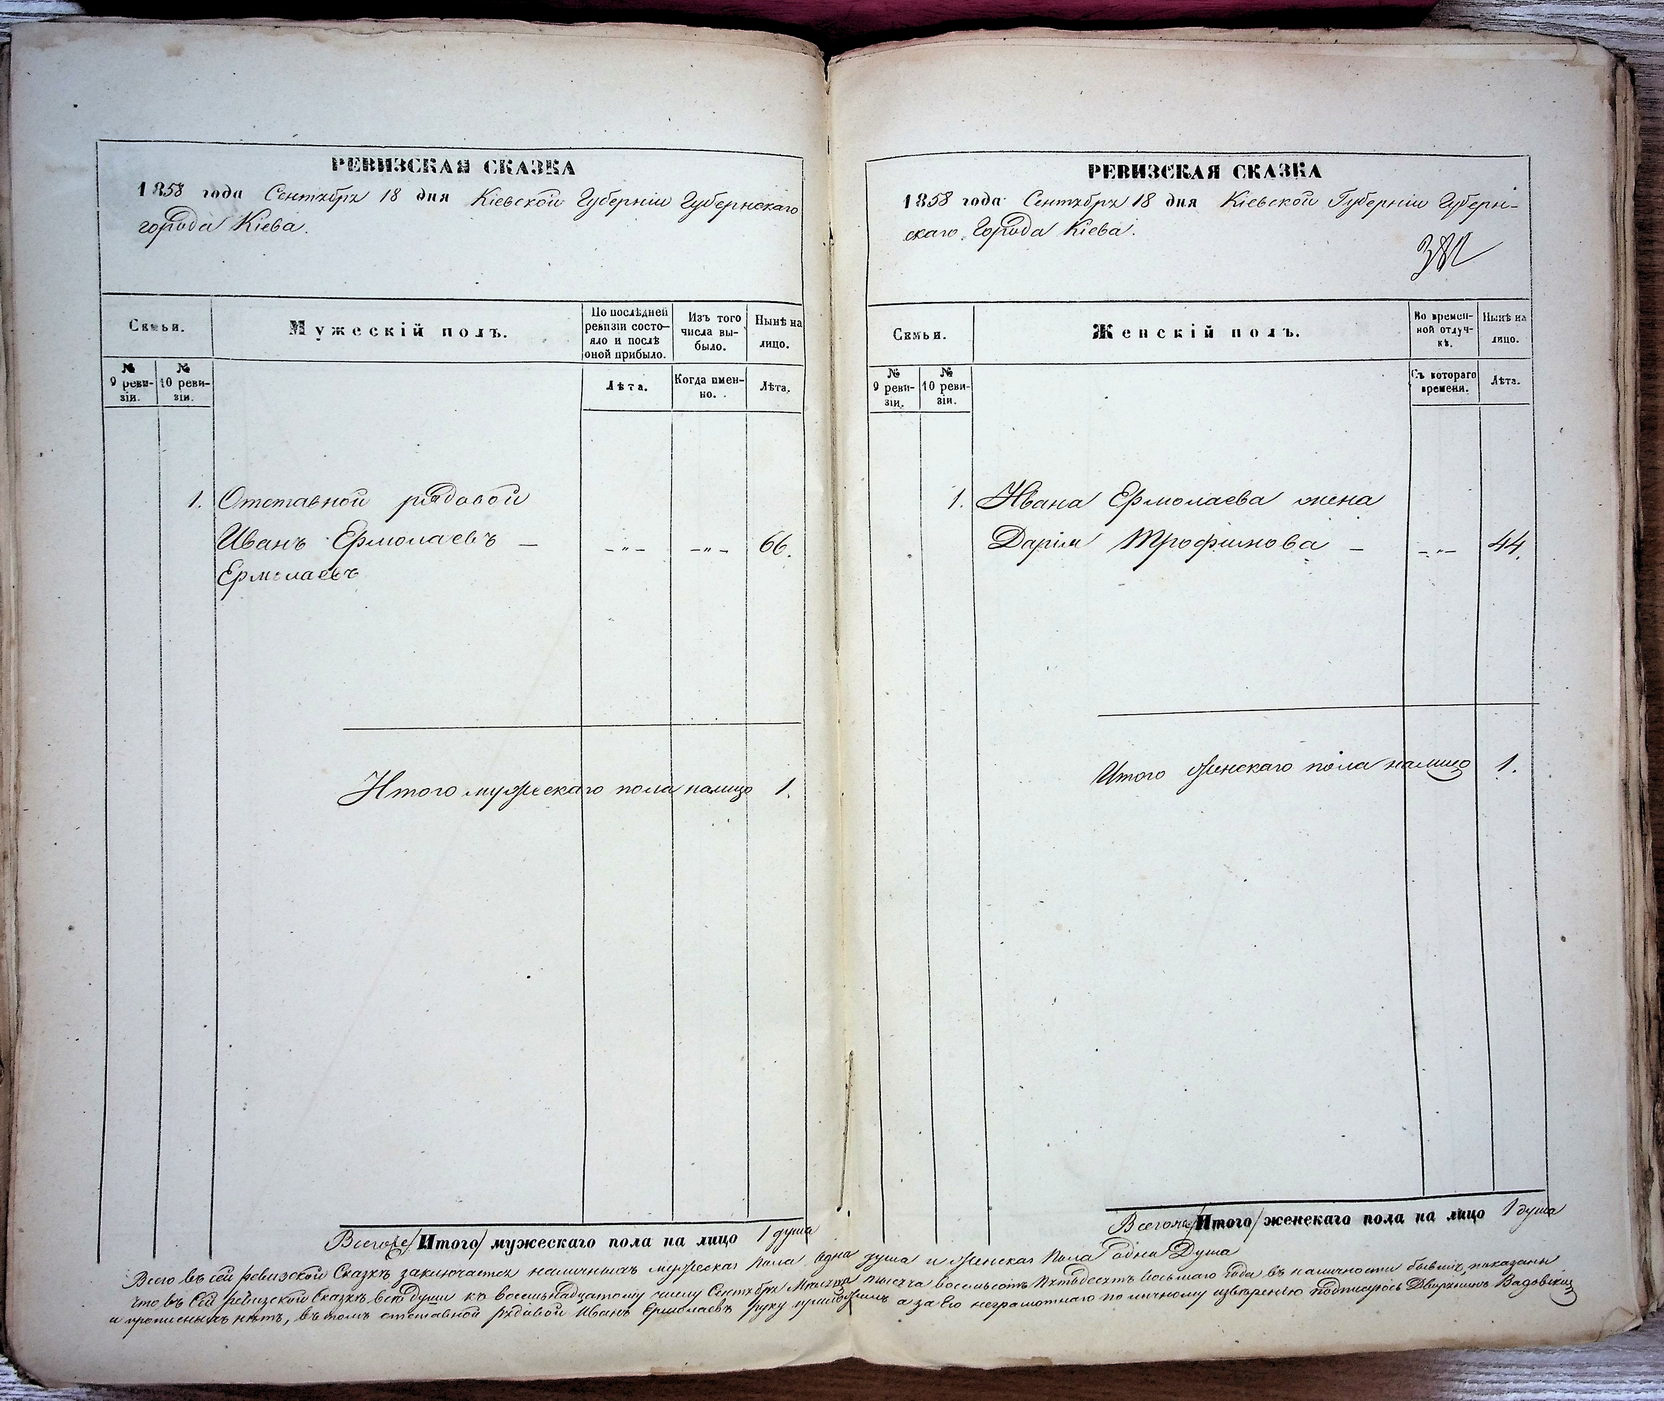 РЕВИЗСКАЯ СКАЗКА
1858 года Сентября 18 дня Кіевской Губерніи Губернскаго
города Кіева.
Семьи.
Мужескій полъ.
По послѣдней ревизіи состо-
яло и послѣ
оной прибыло.
Изъ того
числа вы-
было.
Нынѣ на
лицо.
№
9 реви-
зіи.
№
10 реви-
зіи.
Лѣта.
Когда имен-
но.
Лѣта.
1. Отставной рядовой
Иванъ Ермолаевъ — -„- -„- 66.
Ермолаевъ
Итого мужескаго пола налицо 1.
Всего/Итого/ мужескаго пола на лицо 1 душа
РЕВИЗСКАЯ СКАЗКА
1858 года Сентября 18 дня Кіевской Губерніи Губерн-
скаго города Кіева.
Семьи.
Женскій полъ.
Во времен-
ной отлуч-
кѣ.
Нынѣ на
лицо.
№
9 реви-
зіи.
№
10 реви-
зіи.
Съ котораго
времени.
Лѣта.
1. Ивана Ермолаева жена
Дарія Трофимова — -„- 44.
Итого женскаго пола налицо 1.
Итого/ женскаго пола на лицо 1 душа
Всего въ сей ревизской Сказкѣ заключается наличныхъ мужеска пола одна душа и женска пола одна Душа
что въ сей ревизской Сказкѣ всѣ души къ восемьнадцатому числу Сентября Мѣсяца тысяча восемьсотъ пятьдесятъ восьмаго года въ наличности бывшіе показаны
и прописныхъ нѣтъ, въ томъ отставной рядовой Иванъ Ермолаевъ руку а за его неграмотнаго по личному подписрось Дворянинъ